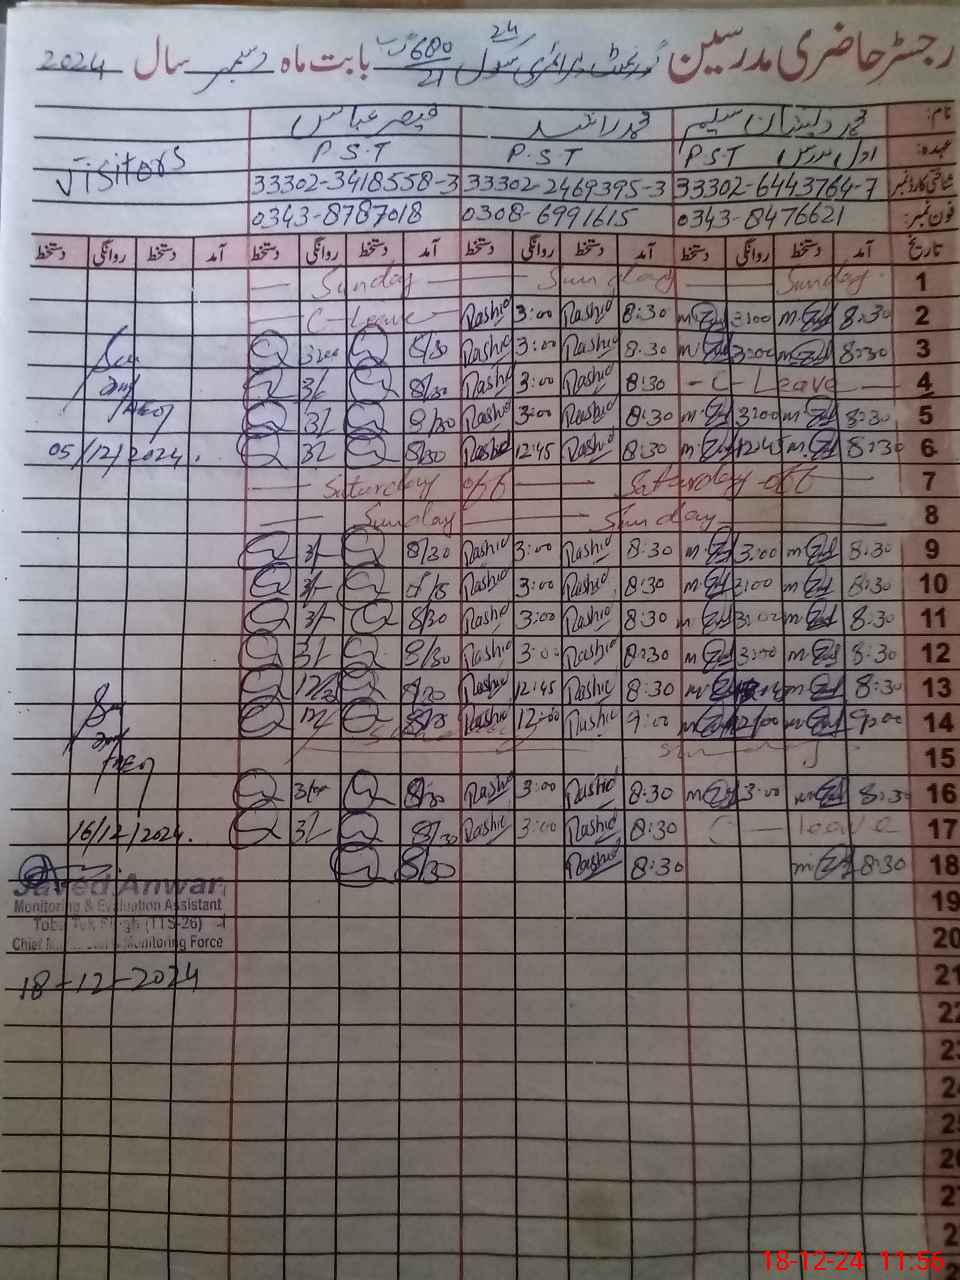 رجسٹر حاضری مدرسین گورنمنٹ پرائمری سکول 680/21 گ ب بابت ماہ دسمبر سال 2024
24
نام: محمد ذیشان سلیم محمد راشد قیصر عباس
عہدہ: اول مدرس P.S.T P.S.T P.S.T Visitors
شناختی کارڈ نمبر 33302-6443764-7 33302-2469395-3 33302-3418558-3
فون نمبر: 0343-8476621 0308-6991615 0343-8787018
تاریخ آمد دستخط روانگی دستخط آمد دستخط روانگی دستخط آمد دستخط روانگی دستخط آمد دستخط روانگی دستخط
1 Sunday Sunday Sunday
2 8:30 3:00 8:30 Rashid 3:00 Rashid C-Leave
3 8:30 3:00 8:30 Rashid 3:00 Rashid 8/30 3:00
4 C-Leave 8:30 Rashid 3:00 Rashid 8/30 3/
5 8:30 3:00 8:30 Rashid 3:00 Rashid 8/30 3/
6 8:30 12:45 8:30 Rashid 12:45 Rashid 8/30 05/12/2024.
7 Saturday off Saturday off
8 Sunday Sunday
9 8:30 3:00 8:30 Rashid 3:00 Rashid 8/30 3/
10 8:30 3:00 8:30 Rashid 3:00 Rashid 3/
11 8:30 3:00 8:30 Rashid 3:00 Rashid 8/30 3/
12 8:30 3:00 8:30 Rashid 3:00 Rashid 8/30 3/
13 8:30 8:30 Rashid 12:45 Rashid 8/30
14 9:00 12:00 9:00 Rashid 12:00 Rashid
15 Sunday
16 8:30 3:00 8:30 Rashid 3:00 Rashid 8/30 3/00
17 C-leave 8:30 Rashid 3:00 Rashid 8/30 3/ 16/12/2024.
18 8:30 8:30 Rashid 8/30
Javed Anwar
Monitoring & Evaluation Assistant
19
Toba Tek Singh (TTS-26)
20
Chief Minister's Monitoring Force
21 18-12-2024
22
23
24
25
26
27
18-12-24 11:56